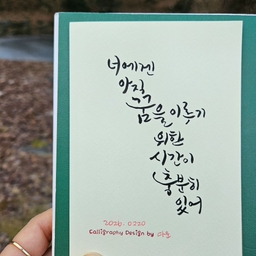 너에겐
아직
꿈을 이룣기
위한
시간이
충분히
있어
2026. 0220
Calligraphy Design by